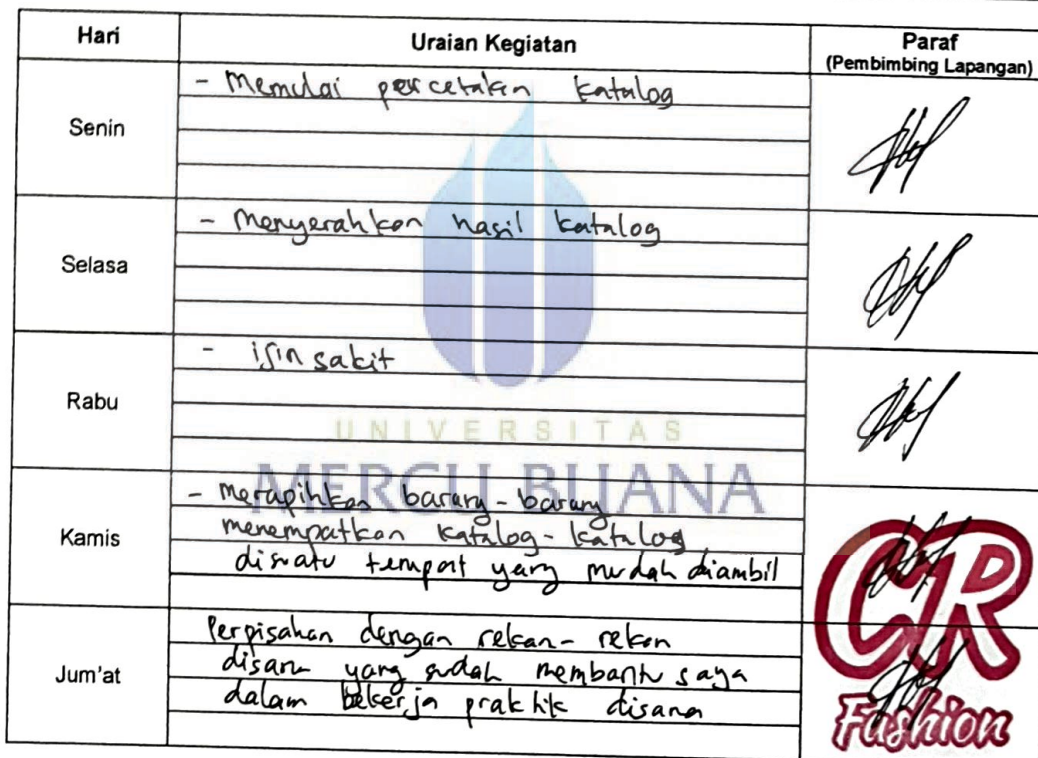 Hari Uraian Kegiatan Paraf
(Pembimbing Lapangan)
Senin
- Memulai percetakan katalog
Selasa
- Menyerahkan hasil katalog
Rabu
- isin sakit
UNIVERSITAS
MERCU BUANA
Kamis
- Merapihkan barang-barang
menempatkan katalog-katalog
disuatu tempat yang mudah diambil
Jum'at
Perpisahan dengan rekan-rekan
disana yang sudah membantu saya
dalam bekerja praktik disana
CR
Fashion